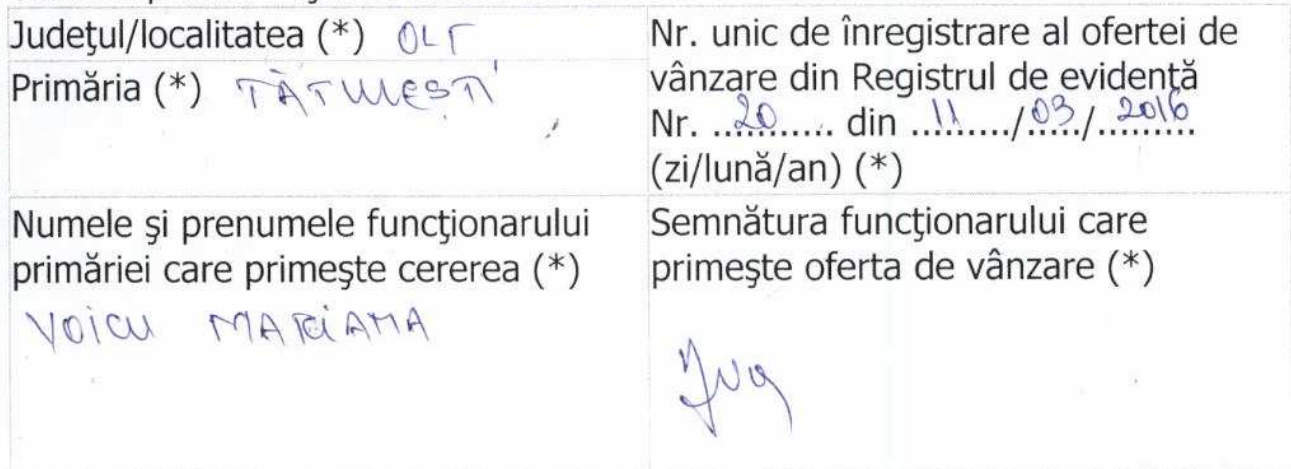 Judeţul/localitatea (*) OLT
Primăria (*) TĂTULEŞTI
Nr. unic de înregistrare al ofertei de
vânzare din Registrul de evidenţă
Nr. ....20....... din ...11....../.03../..2016...
(zi/lună/an) (*)
Numele şi prenumele funcţionarului
primăriei care primeşte cererea (*)
VOICU MARIANA
Semnătura funcţionarului care
primeşte oferta de vânzare (*)